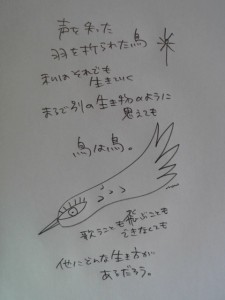 声を失った
羽を折られた鳥
まいはそれでも
生きていく
まるで別の生き物のように
思えても
鳥は鳥。
歌うことも飛ぶことも
できなくても
他にどんな生き方が
あるだろう。